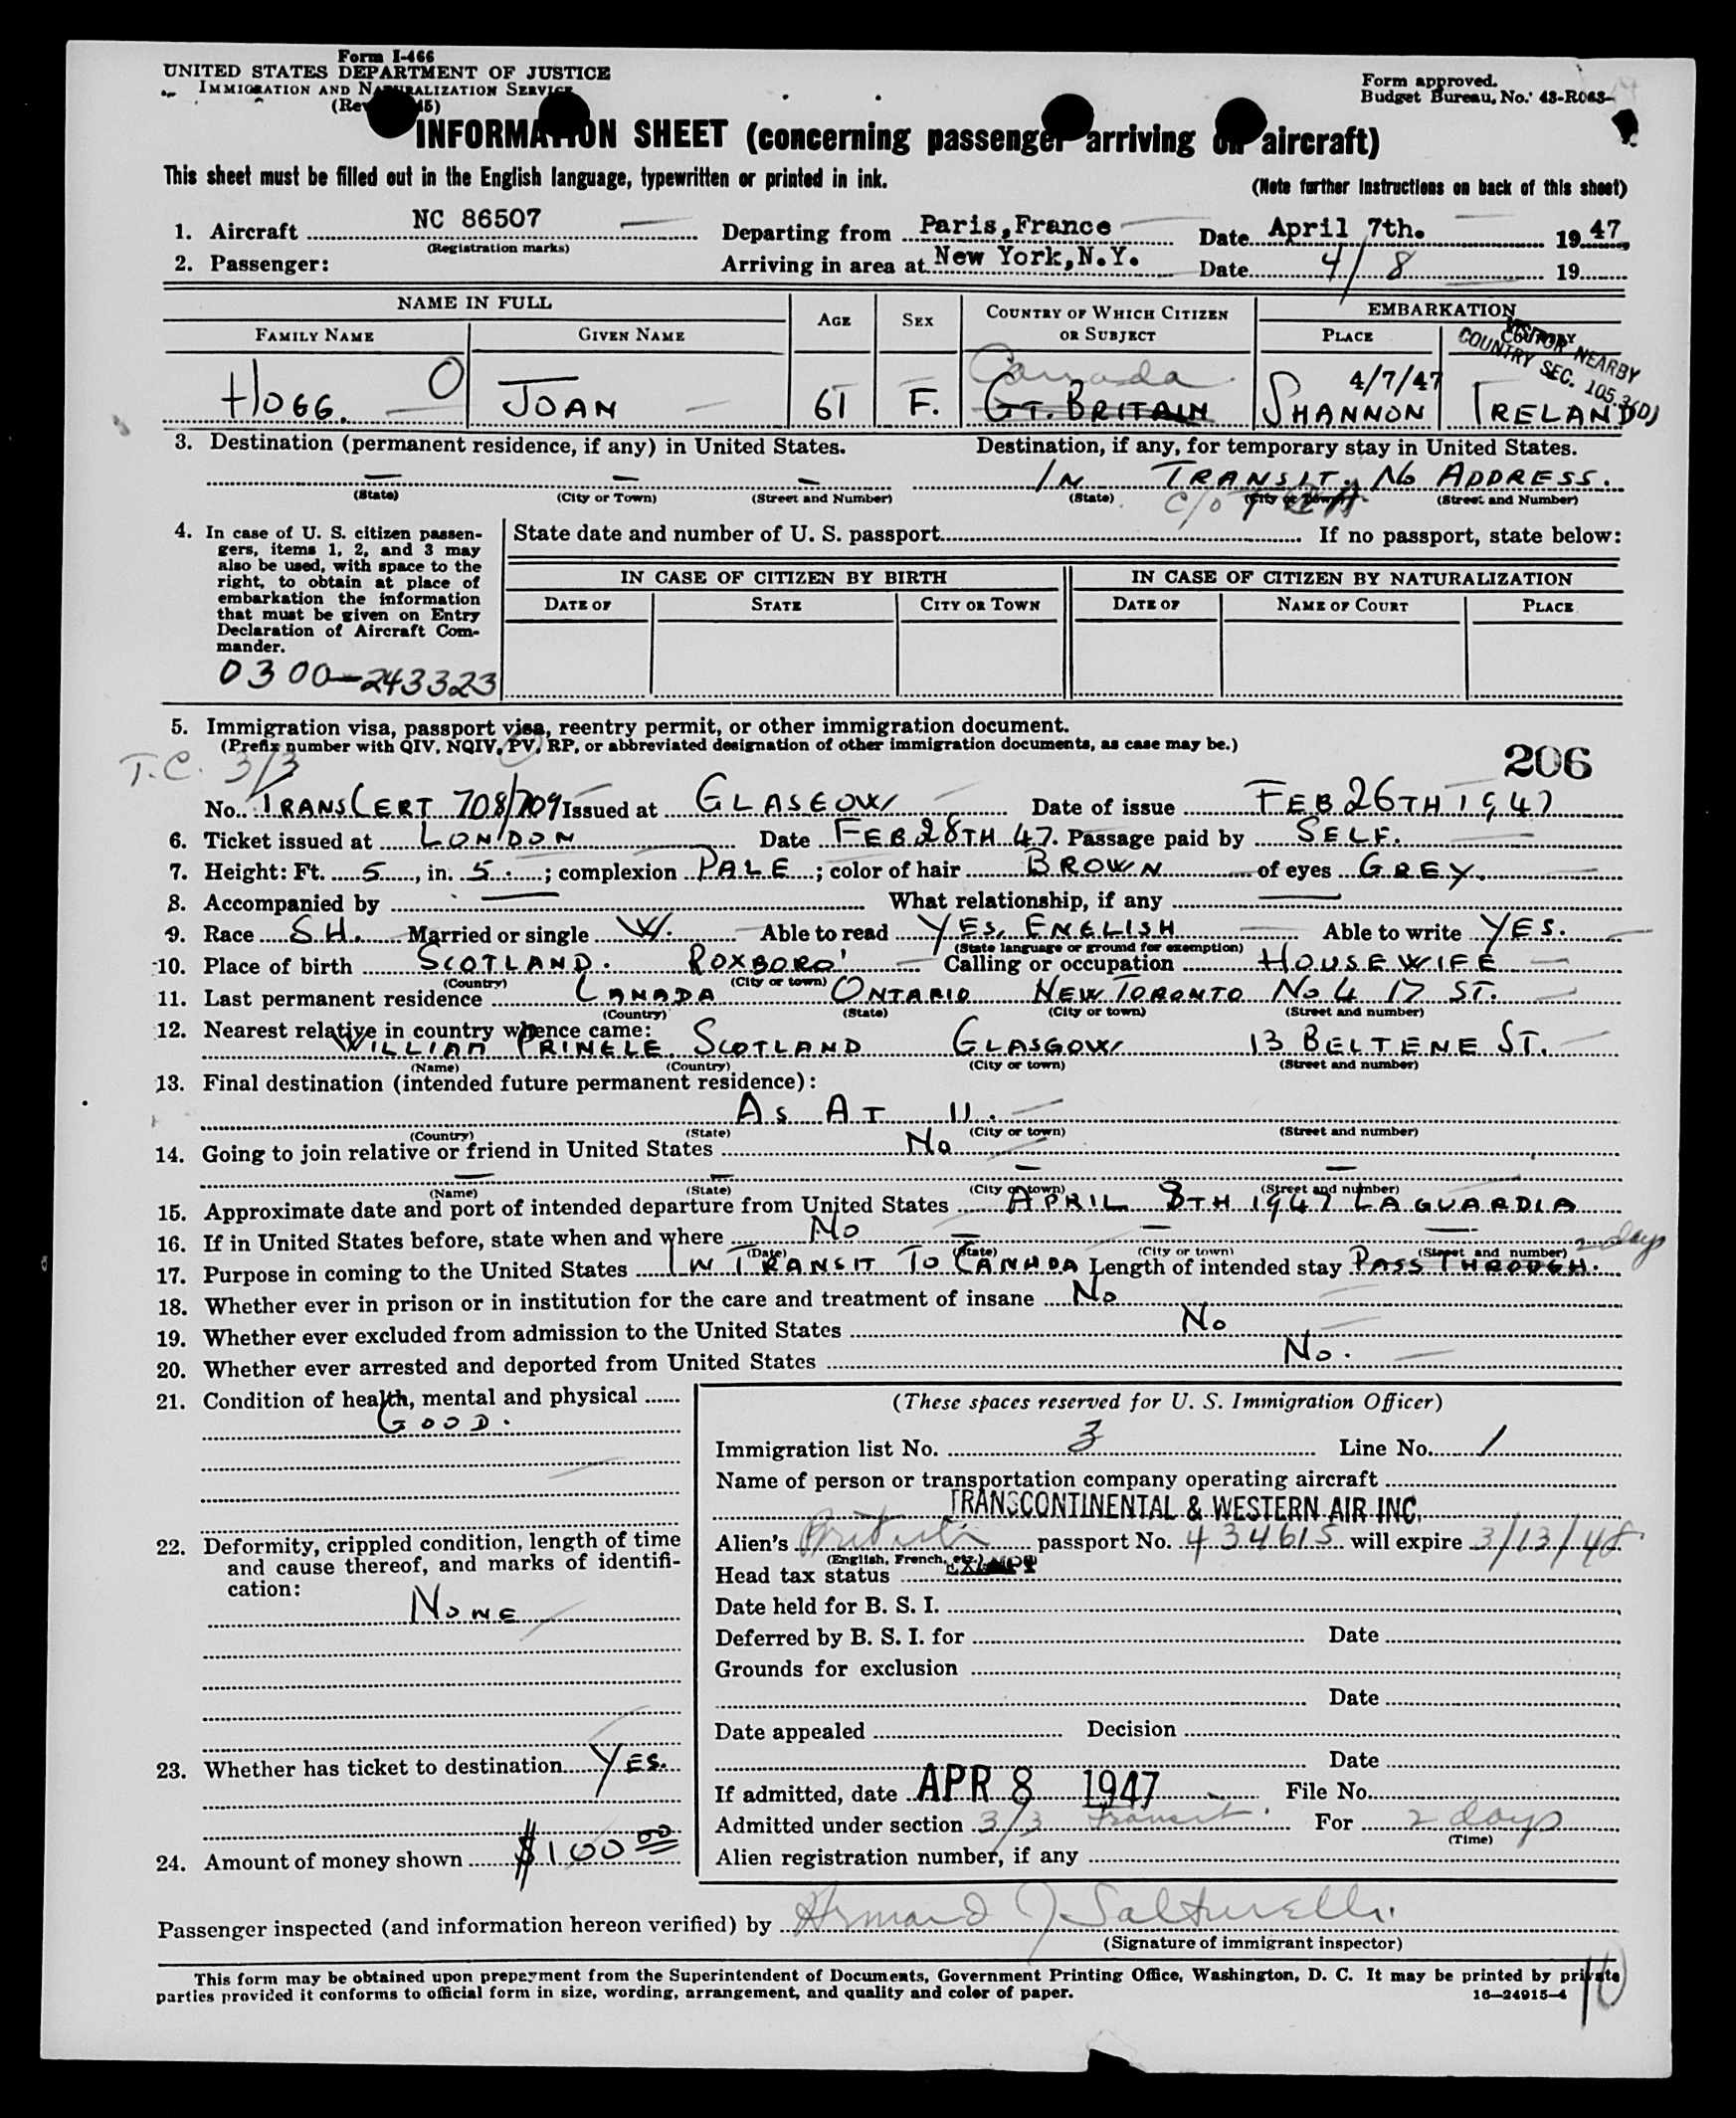 Form I-466
UNITED STATES DEPARTMENT OF JUSTICE
IMMIGRATION AND NATURALIZATION SERVICE
Form approved.
Budget Bureau, No. 43-R063-
INFORMATION SHEET (concerning passenger arriving on aircraft)
This sheet must be filled out in the English language, typewritten or printed in ink.
(Note further instructions on back of this sheet)
1. Aircraft NC 86507 Departing from Paris,France Date April 7th. 1947
(Registration marks)
2. Passenger: Arriving in area at New York,N.Y. Date 4/8 19
NAME IN FULL AGE SEX COUNTRY OF WHICH CITIZEN OR SUBJECT EMBARKATION
FAMILY NAME GIVEN NAME PLACE COUNTRY
VISITOR NEARBY
COUNTRY SEC. 105.3(D)
Canada 4/7/47
HOGG. O JOAN 61 F. GT. BRITAIN SHANNON IRELAND
3. Destination (permanent residence, if any) in United States. Destination, if any, for temporary stay in United States.
— — — IN TRANSIT, NO ADDRESS.
(State) (City or Town) (Street and Number) (State) (City or Town) (Street and Number)
c/o
4. In case of U. S. citizen passengers, items 1, 2, and 3 may also be used, with space to the right, to obtain at place of embarkation the information that must be given on Entry Declaration of Aircraft Commander.
State date and number of U. S. passport If no passport, state below:
IN CASE OF CITIZEN BY BIRTH IN CASE OF CITIZEN BY NATURALIZATION
DATE OF STATE CITY OR TOWN DATE OF NAME OF COURT PLACE
0300-243323
5. Immigration visa, passport visa, reentry permit, or other immigration document.
(Prefix number with QIV, NQIV, PV, RP, or abbreviated designation of other immigration documents, as case may be.)
T.C. 3/3
206
No. TRANSCERT 708/709 Issued at GLASGOW Date of issue FEB 26TH 1947
6. Ticket issued at LONDON Date FEB 28TH 47. Passage paid by SELF.
7. Height: Ft. 5, in. 5.; complexion PALE; color of hair BROWN of eyes GREY.
8. Accompanied by — What relationship, if any —
9. Race S.H. Married or single W. Able to read YES, ENGLISH Able to write YES.
(State language or ground for exemption)
10. Place of birth SCOTLAND. ROXBORO' Calling or occupation HOUSEWIFE
(Country) (City or town)
11. Last permanent residence CANADA ONTARIO NEW TORONTO No 4 17 ST.
(Country) (State) (City or town) (Street and number)
12. Nearest relative in country whence came:
WILLIAM PRINGLE SCOTLAND GLASGOW 13 BELTENE ST.
(Name) (Country) (City or town) (Street and number)
13. Final destination (intended future permanent residence):
AS AT 11.
(Country) (State) (City or town) (Street and number)
14. Going to join relative or friend in United States No
— — — —
(Name) (State) (City or town) (Street and number)
15. Approximate date and port of intended departure from United States APRIL 8TH 1947 LA GUARDIA
16. If in United States before, state when and where No — — —
(Date) (State) (City or town) (Street and number)
2 days
17. Purpose in coming to the United States IN TRANSIT TO CANADA Length of intended stay PASS THROUGH.
18. Whether ever in prison or in institution for the care and treatment of insane No
19. Whether ever excluded from admission to the United States No
20. Whether ever arrested and deported from United States No.
21. Condition of health, mental and physical
GOOD.
22. Deformity, crippled condition, length of time and cause thereof, and marks of identification:
NONE
23. Whether has ticket to destination YES.
24. Amount of money shown $100 00
(These spaces reserved for U. S. Immigration Officer)
Immigration list No. 3 Line No. 1
Name of person or transportation company operating aircraft
TRANSCONTINENTAL & WESTERN AIR INC.
Alien's British passport No. 434615 will expire 3/13/48
(English, French, etc.)
Head tax status EXEMPT
Date held for B. S. I.
Deferred by B. S. I. for Date
Grounds for exclusion
Date
Date appealed Decision
Date
If admitted, date APR 8 1947 File No.
Admitted under section 3/3 Transit. For 2 days
(Time)
Alien registration number, if any
Passenger inspected (and information hereon verified) by Armand J.
(Signature of immigrant inspector)
This form may be obtained upon prepayment from the Superintendent of Documents, Government Printing Office, Washington, D. C. It may be printed by private
parties provided it conforms to official form in size, wording, arrangement, and quality and color of paper.
16—24915-4